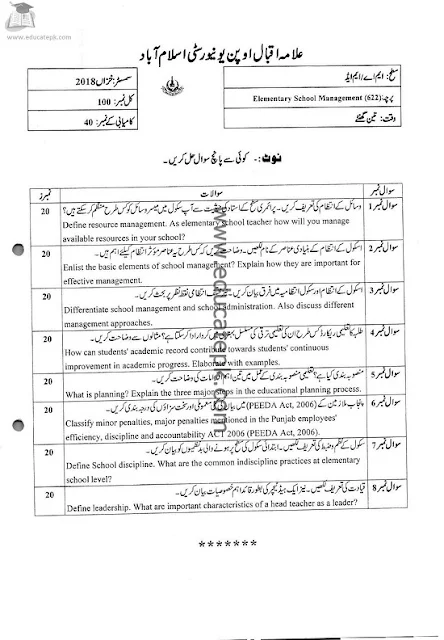 www.educatepk.com
علامہ اقبال اوپن یونیورسٹی اسلام آباد
سطح: ایم اے/ایم ایڈ
سمسٹر: خزاں 2018
پرچہ: Elementary School Management (622)
کل نمبر: 100
وقت: تین گھنٹے
کامیابی کے نمبر: 40
نوٹ:- کوئی سے پانچ سوال حل کریں۔
سوال نمبر سوالات نمبرز
سوال نمبر 1 وسائل کے انتظام کی تعریف کریں۔ پرائمری سطح کے استاد کی حیثیت سے آپ سکول میں میسر وسائل کو کس طرح منظم کر سکتے ہیں؟ 20
Define resource management. As elementary school teacher how will you manage
available resources in your school?
سوال نمبر 2 اسکول کے انتظام کے بنیادی عناصر کے نام لکھیں۔ وضاحت کریں کہ کس طرح یہ عناصر مؤثر انتظام کیلئے اہم ہیں۔ 20
Enlist the basic elements of school management? Explain how they are important for
effective management.
سوال نمبر 3 اسکول کے انتظام اور سکول انتظامیہ میں فرق بیان کریں۔ انتظامی نقطہ نظر پر بحث کریں۔ 20
Differentiate school management and school administration. Also discuss different
management approaches.
سوال نمبر 4 طلبہ کا تعلیمی ریکارڈ کس طرح ان کی تعلیمی ترقی کی مسلسل بہتری میں کردار ادا کر سکتا ہے؟ مثالوں سے وضاحت کریں۔ 20
How can students' academic record contribute towards students' continuous
improvement in academic progress. Elaborate with examples.
سوال نمبر 5 منصوبہ بندی کیا ہے؟ تعلیمی منصوبہ بندی کے عمل میں تین اہم اقدامات کی وضاحت کریں۔ 20
What is planning? Explain the three major steps in the educational planning process.
سوال نمبر 6 پنجاب ملازمین کے (PEEDA Act, 2006) میں بیان کی گئی معمولی اور سخت سزاؤں کی درجہ بندی کریں۔ 20
Classify minor penalties, major penalties mentioned in the Punjab employees'
efficiency, discipline and accountability ACT 2006 (PEEDA Act, 2006).
سوال نمبر 7 سکول کے نظم و ضبط کی تعریف لکھیں۔ ابتدائی سکول کی سطح پر ہونے والی بدنظمیوں کو بیان کریں۔ 20
Define School discipline. What are the common indiscipline practices at elementary
school level?
سوال نمبر 8 قیادت کی تعریف لکھیں۔ نیز ایک ہیڈ ٹیچر کی بطور قائد اہم خصوصیات بیان کریں۔ 20
Define leadership. What are important characteristics of a head teacher as a leader?
*******
www.educatepk.com